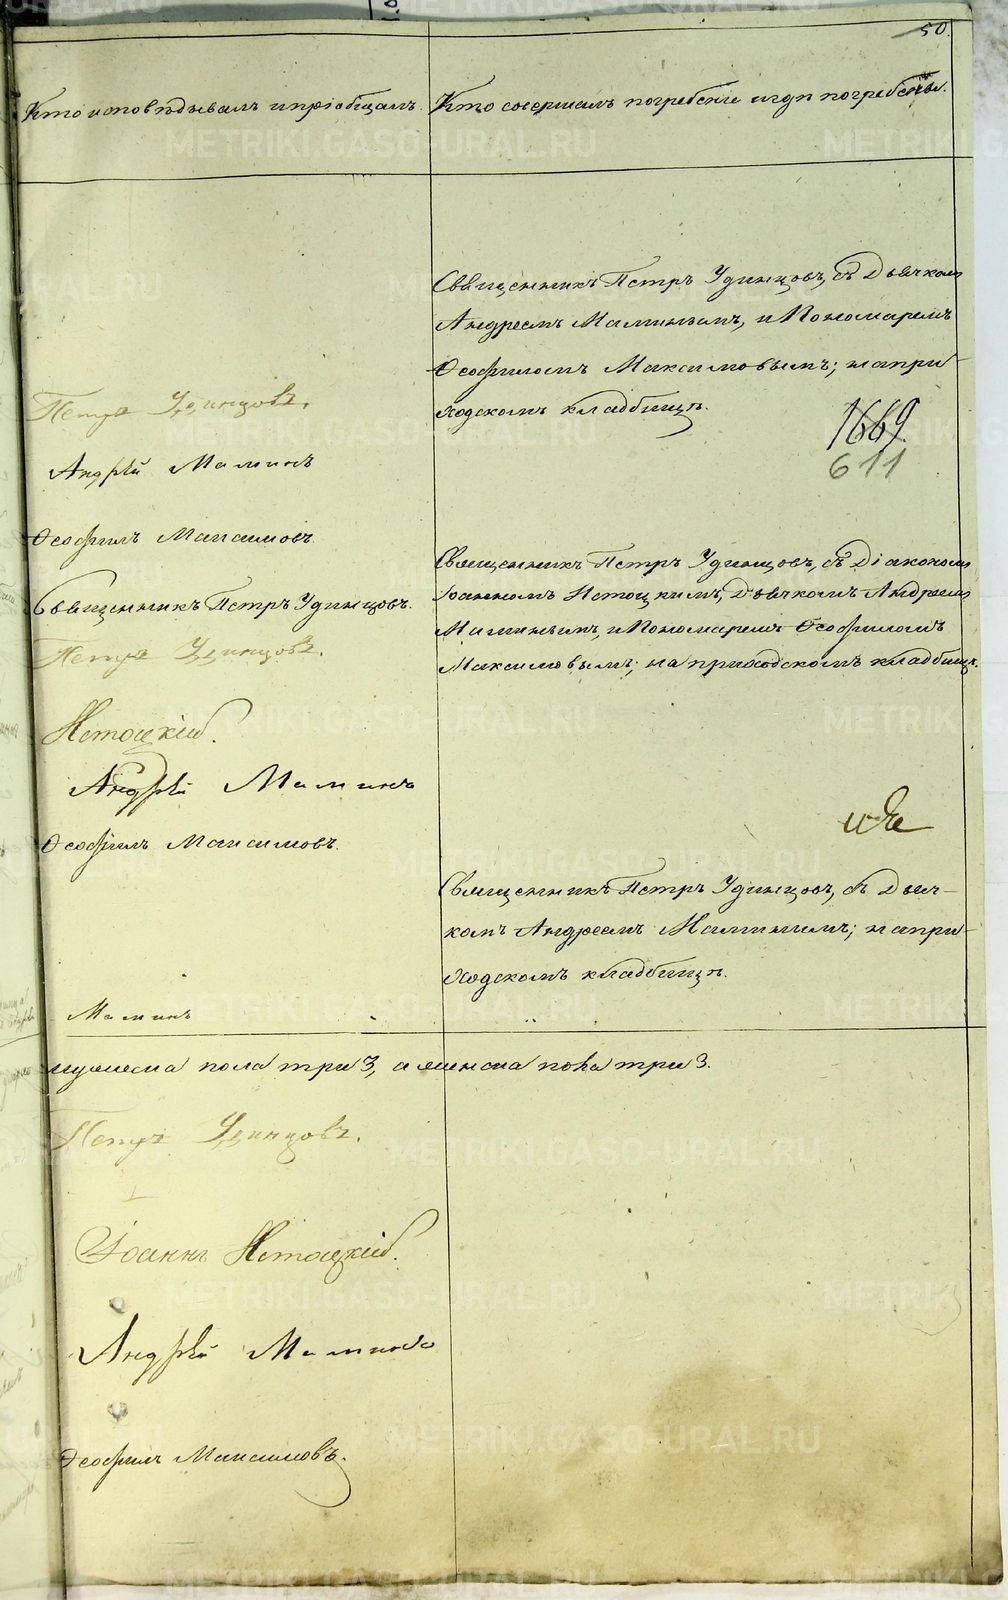 50.
Кто исповѣдывалъ и пріобщалъ.
Кто совершалъ погребеніе и гдѣ погребены.
Священникъ Петръ Удинцовъ, съ Дьячкомъ
Андреемъ Маминымъ, и Пономаремъ
Ѳеофиломъ Максимовымъ; на при-
ходскомъ кладбищѣ.
1669.
611
Петръ Удинцовъ.
Андрей Маминъ
Ѳеофилъ Максимовъ.
Священникъ Петръ Удинцовъ, съ Діакономъ
Іоанномъ Нетоцкимъ, Дьячкомъ Андреемъ
Маминымъ, и Пономаремъ Ѳеофиломъ
Максимовымъ; на приходскомъ кладбищѣ.
Священникъ Петръ Удинцовъ.
Петръ Удинцовъ.
Нетоцкій.
Андрей Маминъ
Ѳеофилъ Максимовъ.
Священникъ Петръ Удинцовъ, съ Дьяч-
комъ Андреемъ Маминымъ; на при-
ходскомъ кладбищѣ.
Маминъ
мужеска пола три 3, а женска пола три 3.
Петръ Удинцовъ.
Іоаннъ Нетоцкій.
Андрей Маминъ
Ѳеофилъ Максимовъ.
METRIKI.GASO-URAL.RU